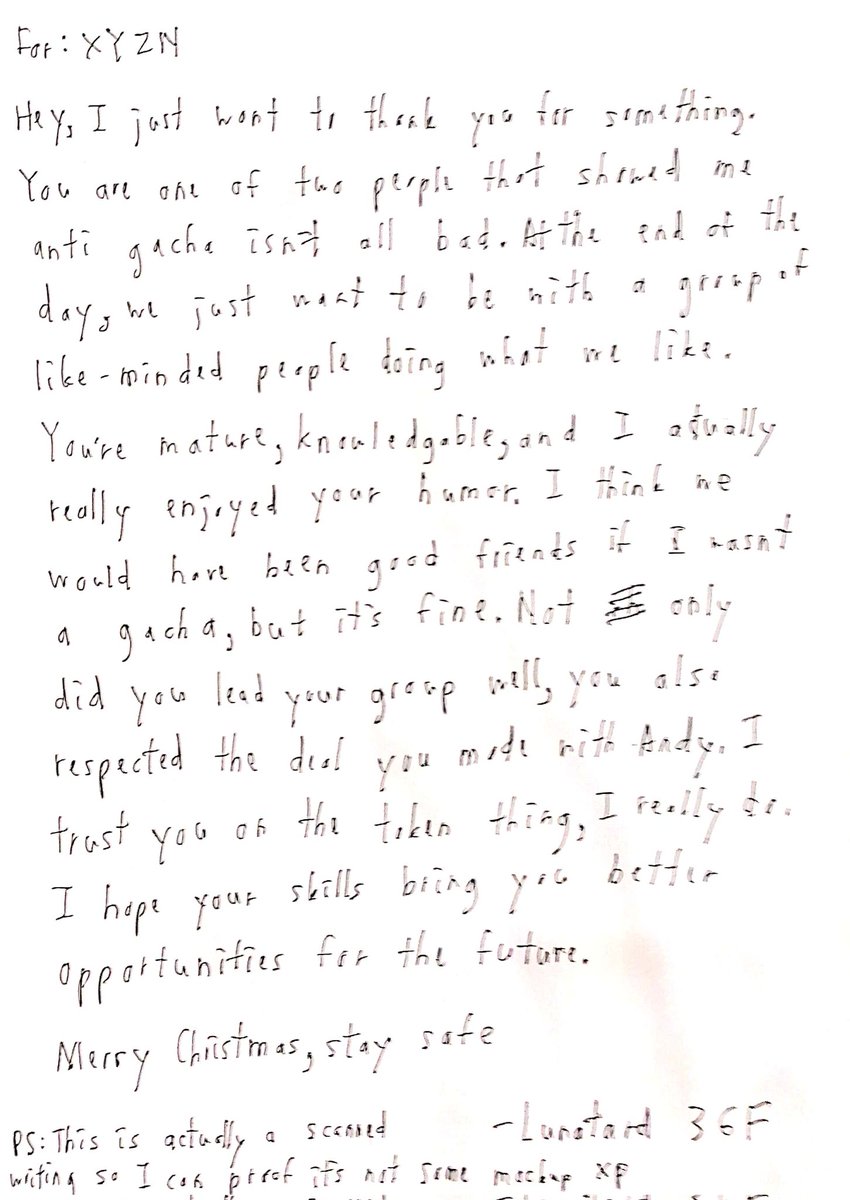 For: XYZN
Hey, I just want to thank you for something.
You are one of two people that showed me
anti gacha isn't all bad. At the end of the
day, we just want to be with a group of
like-minded people doing what we like.
You're mature, knowledgable, and I atually
really enjoyed your humor. I think we
would have been good friends if I wasnt
a gacha, but it's fine. Not only
did you lead your group well, you also
respected the deal you made with Andy. I
trust you on the token thing, I really do.
I hope your skills bring you better
opportunities for the future.
Merry Chistmas, stay safe
-Lunatard 36F
PS: This is actually a scanned
writing so I can proof it's not some mockup xp